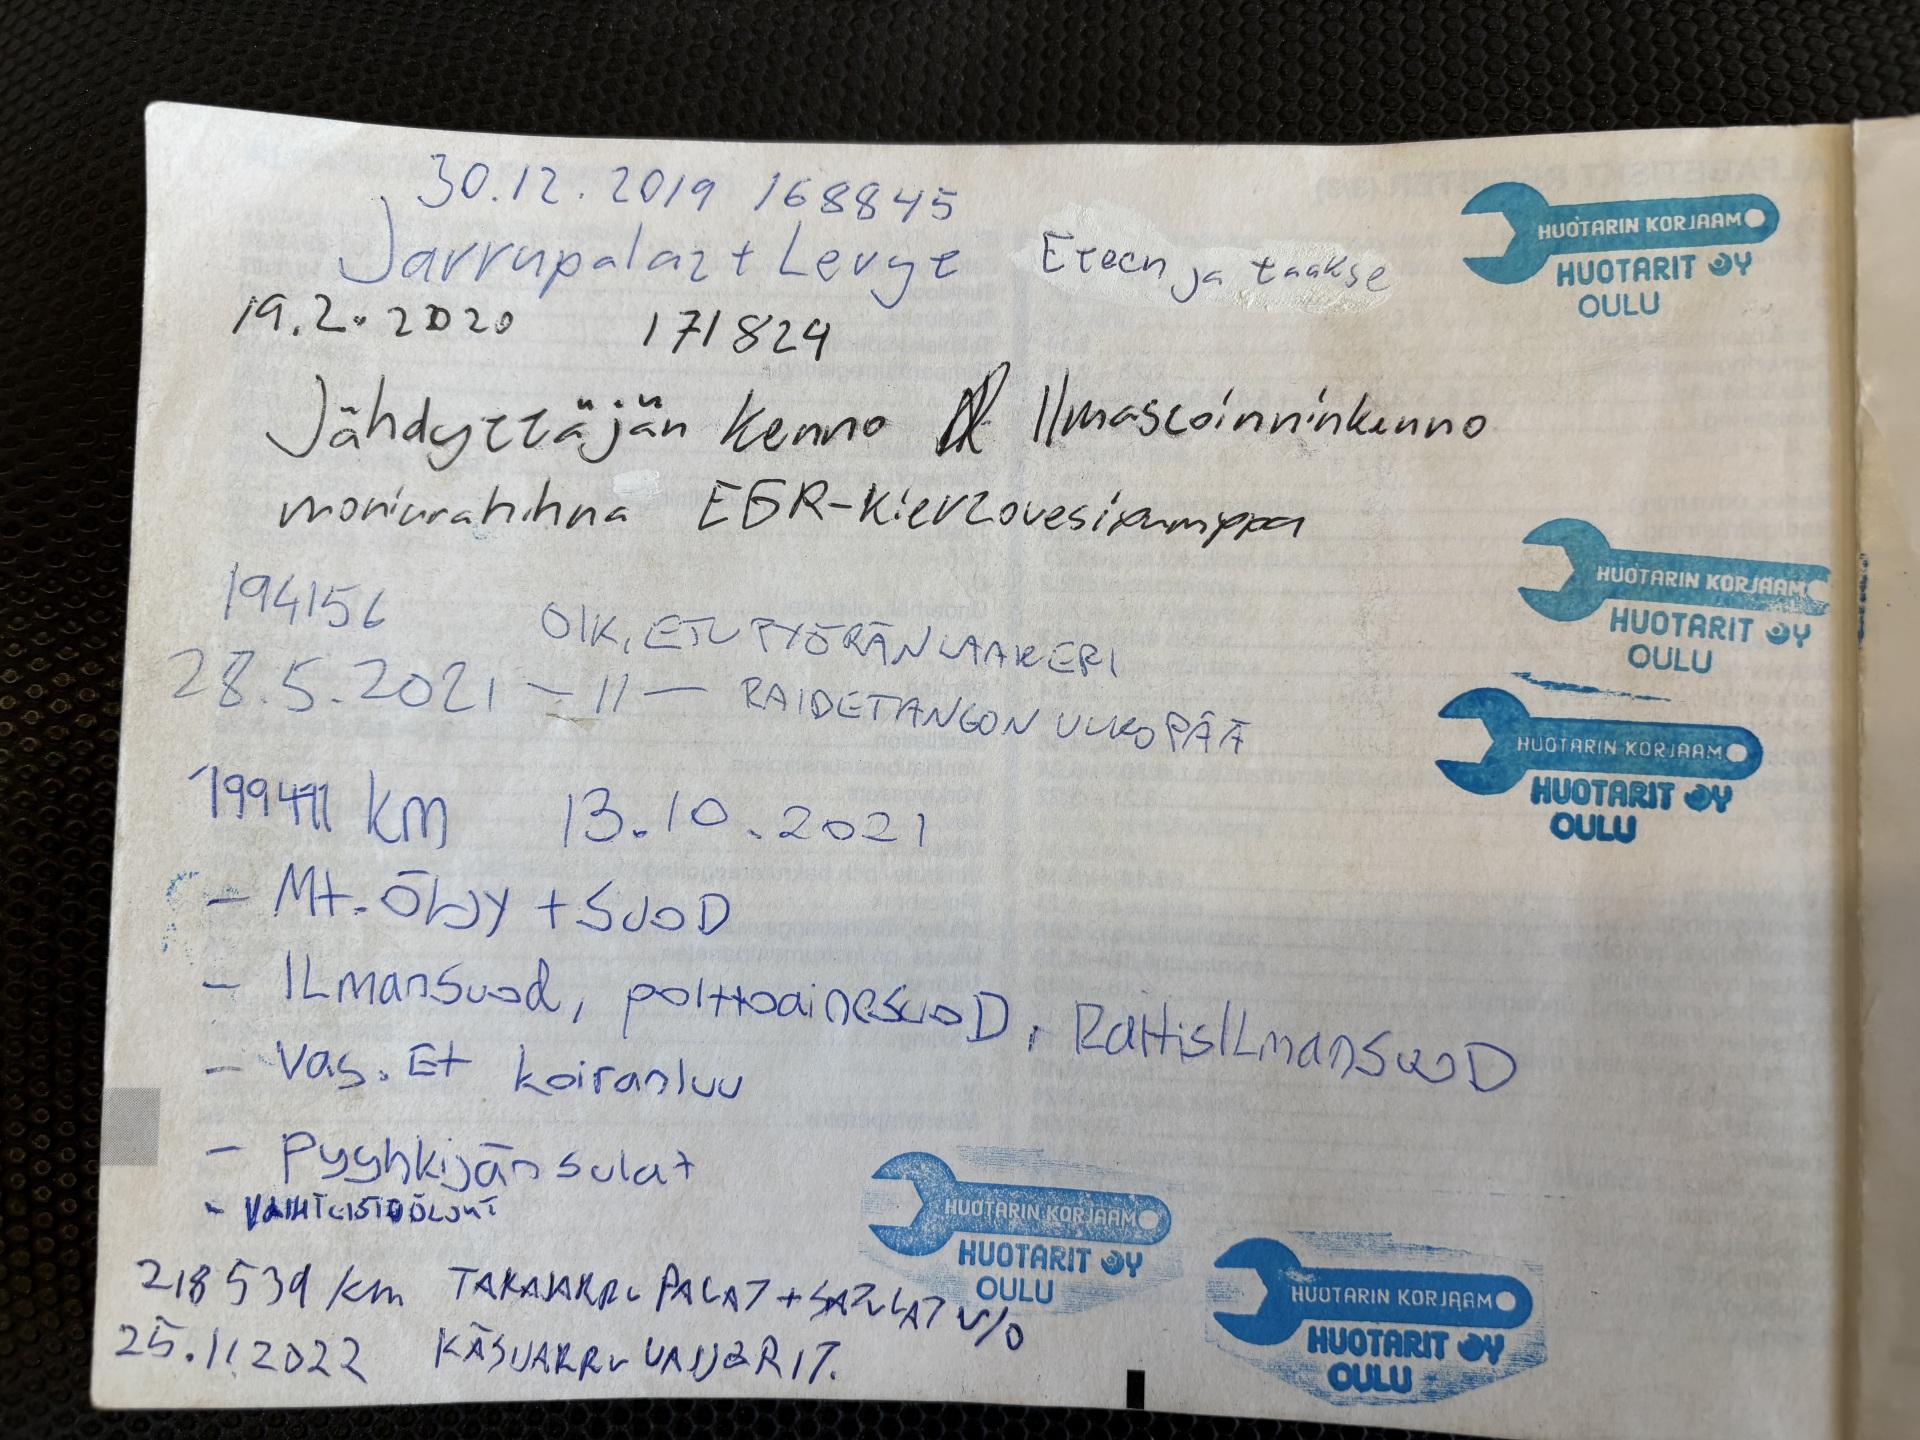 30.12.2019 168845
Jarrupalat + Levyt Eteen ja taakse
HUOTARIN KORJAAMO
HUOTARIT OY
OULU
19.2.2020 171824
Jähdyttäjän Kenno Ilmastoinninkenno
moniurahihna EGR-Kiertovesipumppu
194156 OIK. ETUPYÖRÄNLAAKERI
HUOTARIN KORJAAMO
HUOTARIT OY
OULU
28.5.2021 -11- RAIDETANGON ULKOPÄÄ
HUOTARIN KORJAAMO
HUOTARIT OY
OULU
km 13.10.2021
- Mt. Öljy + SuoD
- ILmanSuod, polttoainesuoD, RaittisILmansuoD
- Vas. Et koiranluu
- Pyyhkijänsulat
- VAIHTEISTOÖLJYT
HUOTARIN KORJAAMO
HUOTARIT OY
OULU
218539 km TAKAJARRUPALAT + SATULAT V/O
25.11.2022 KÄSIJARRUVAIJERIT.
HUOTARIN KORJAAMO
HUOTARIT OY
OULU